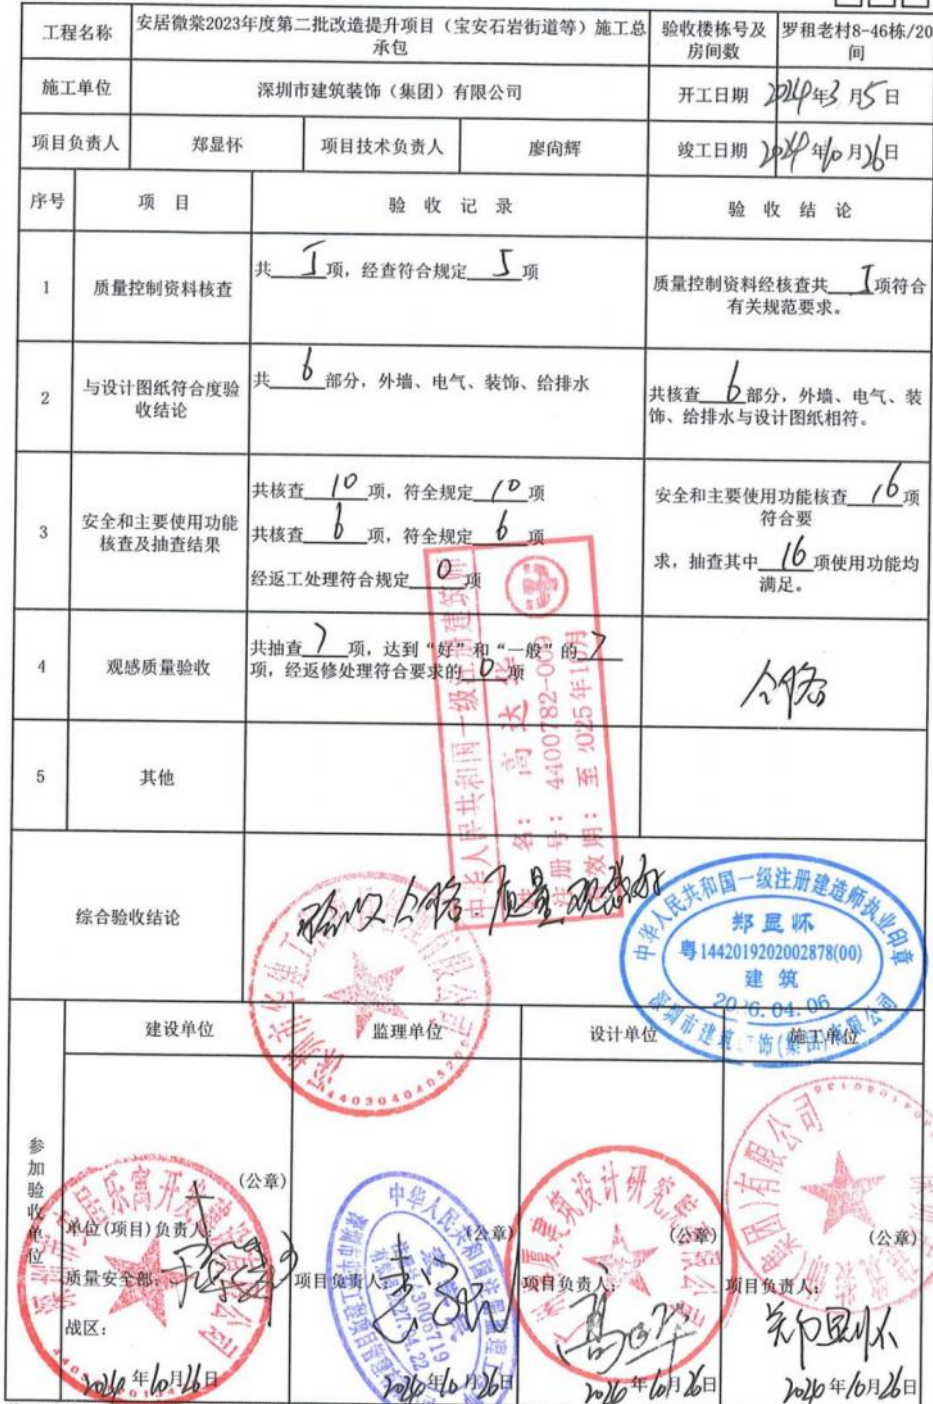 工程名称
安居微棠2023年度第二批改造提升项目（宝安石岩街道等）施工总
承包
验收楼栋号及
房间数
罗租老村8-46栋/20
间
施工单位
深圳市建筑装饰（集团）有限公司
开工日期
2024年3月5日
项目负责人
郑显怀
项目技术负责人
廖尚辉
竣工日期
2024年10月26日
序号
项 目
验 收 记 录
验 收 结 论
1
质量控制资料核查
共 5 项，经查符合规定 5 项
质量控制资料经核查共 5 项符合
有关规范要求。
2
与设计图纸符合度验
收结论
共 6 部分，外墙、电气、装饰、给排水
共核查 6 部分，外墙、电气、装
饰、给排水与设计图纸相符。
3
安全和主要使用功能
核查及抽查结果
共核查 10 项，符全规定 10 项
共核查 6 项，符全规定 6 项
经返工处理符合规定 0 项
安全和主要使用功能核查 16 项
符合要
求，抽查其中 16 项使用功能均
满足。
4
观感质量验收
共抽查 7 项，达到“好”和“一般”的 7
项，经返修处理符合要求的 0 项
合格
5
其他
中华人民共和国一级注册建筑师
名：高达
注册号：4400782-009
效期：至2025年10月
综合验收结论
验收合格.质量观感好
中华人民共和国一级注册建造师执业印章
郑显怀
粤1442019202002878(00)
建筑
2026.04.06
深圳市建筑装饰(集团)有限公司
参加验收单位
建设单位
监理单位
设计单位
施工单位
(公章)
单位(项目)负责人：
质量安全部：
战区：
2024年10月26日
(公章)
项目负责人：
2024年10月26日
(公章)
项目负责人：
2024年10月26日
(公章)
项目负责人：
郑显怀
2024年10月26日